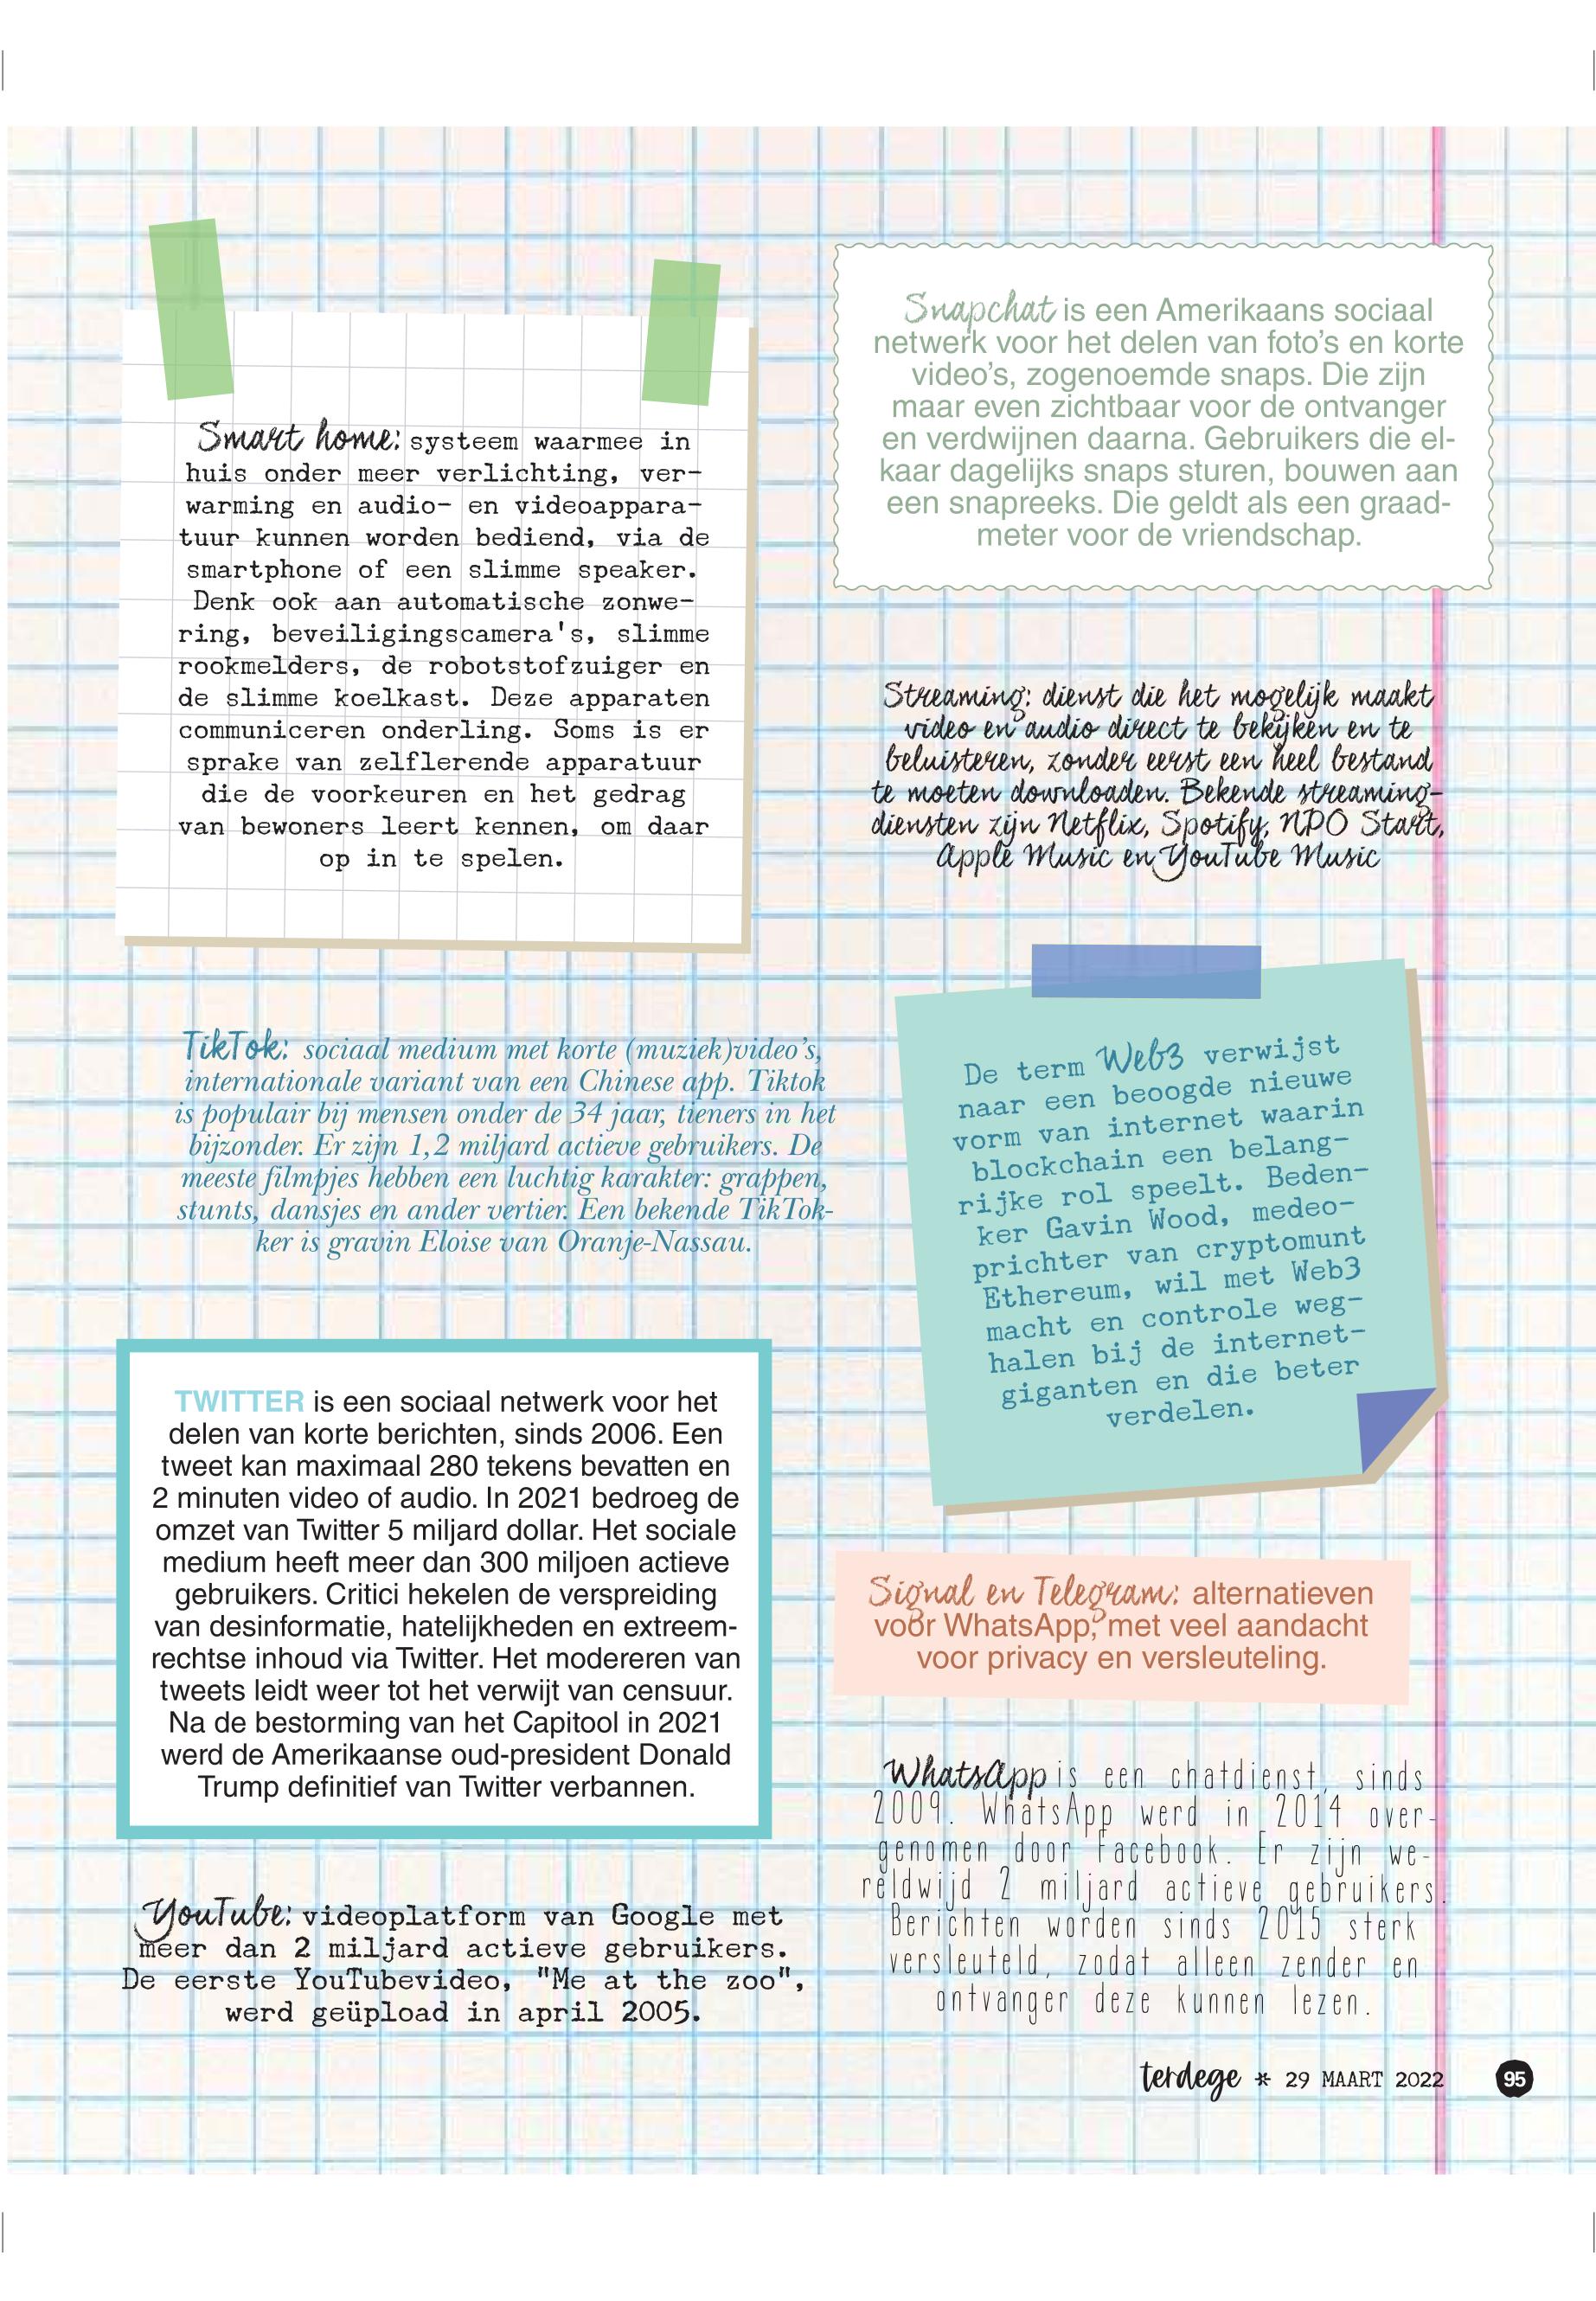 Smart home: systeem waarmee in
huis onder meer verlichting, ver-
warming en audio- en videoappara-
tuur kunnen worden bediend, via de
smartphone of een slimme speaker.
Denk ook aan automatische zonwe-
ring, beveiligingscamera's, slimme
rookmelders, de robotstofzuiger en
de slimme koelkast. Deze apparaten
communiceren onderling. Soms is er
sprake van zelflerende apparatuur
die de voorkeuren en het gedrag
van bewoners leert kennen, om daar
op in te spelen.
Snapchat is een Amerikaans sociaal
netwerk voor het delen van foto's en korte
video's, zogenoemde snaps. Die zijn
maar even zichtbaar voor de ontvanger
en verdwijnen daarna. Gebruikers die el-
kaar dagelijks snaps sturen, bouwen aan
een snapreeks. Die geldt als een graad-
meter voor de vriendschap.
Streaming: dienst die het mogelijk maakt
video en audio direct te bekijken en te
beluisteren, zonder eerst een heel bestand
te moeten downloaden. Bekende streaming-
diensten zijn Netflix, Spotify, NPO Start,
Apple Music en YouTube Music
TikTok: sociaal medium met korte (muziek)video's,
internationale variant van een Chinese app. Tiktok
is populair bij mensen onder de 34 jaar, tieners in het
bijzonder. Er zijn 1,2 miljard actieve gebruikers. De
meeste filmpjes hebben een luchtig karakter: grappen,
stunts, dansjes en ander vertier. Een bekende TikTok-
ker is gravin Eloise van Oranje-Nassau.
De term Web3 verwijst
naar een beoogde nieuwe
vorm van internet waarin
blockchain een belang-
rijke rol speelt. Beden-
ker Gavin Wood, medeo-
prichter van cryptomunt
Ethereum, wil met Web3
macht en controle weg-
halen bij de internet-
giganten en die beter
verdelen.
TWITTER is een sociaal netwerk voor het
delen van korte berichten, sinds 2006. Een
tweet kan maximaal 280 tekens bevatten en
2 minuten video of audio. In 2021 bedroeg de
omzet van Twitter 5 miljard dollar. Het sociale
medium heeft meer dan 300 miljoen actieve
gebruikers. Critici hekelen de verspreiding
van desinformatie, hatelijkheden en extreem-
rechtse inhoud via Twitter. Het modereren van
tweets leidt weer tot het verwijt van censuur.
Na de bestorming van het Capitool in 2021
werd de Amerikaanse oud-president Donald
Trump definitief van Twitter verbannen.
Signal en Telegram: alternatieven
voor WhatsApp, met veel aandacht
voor privacy en versleuteling.
WhatsApp is een chatdienst, sinds
2009. WhatsApp werd in 2014 over-
genomen door Facebook. Er zijn we-
reldwijd 2 miljard actieve gebruikers.
Berichten worden sinds 2015 sterk
versleuteld, zodat alleen zender en
ontvanger deze kunnen lezen.
YouTube: videoplatform van Google met
meer dan 2 miljard actieve gebruikers.
De eerste YouTubevideo, "Me at the zoo",
werd geüpload in april 2005.
terdege * 29 MAART 2022 95